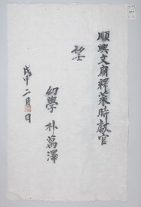 順興文廟釋菜時獻官
望
幼學 朴萬澤
戊申二月 日